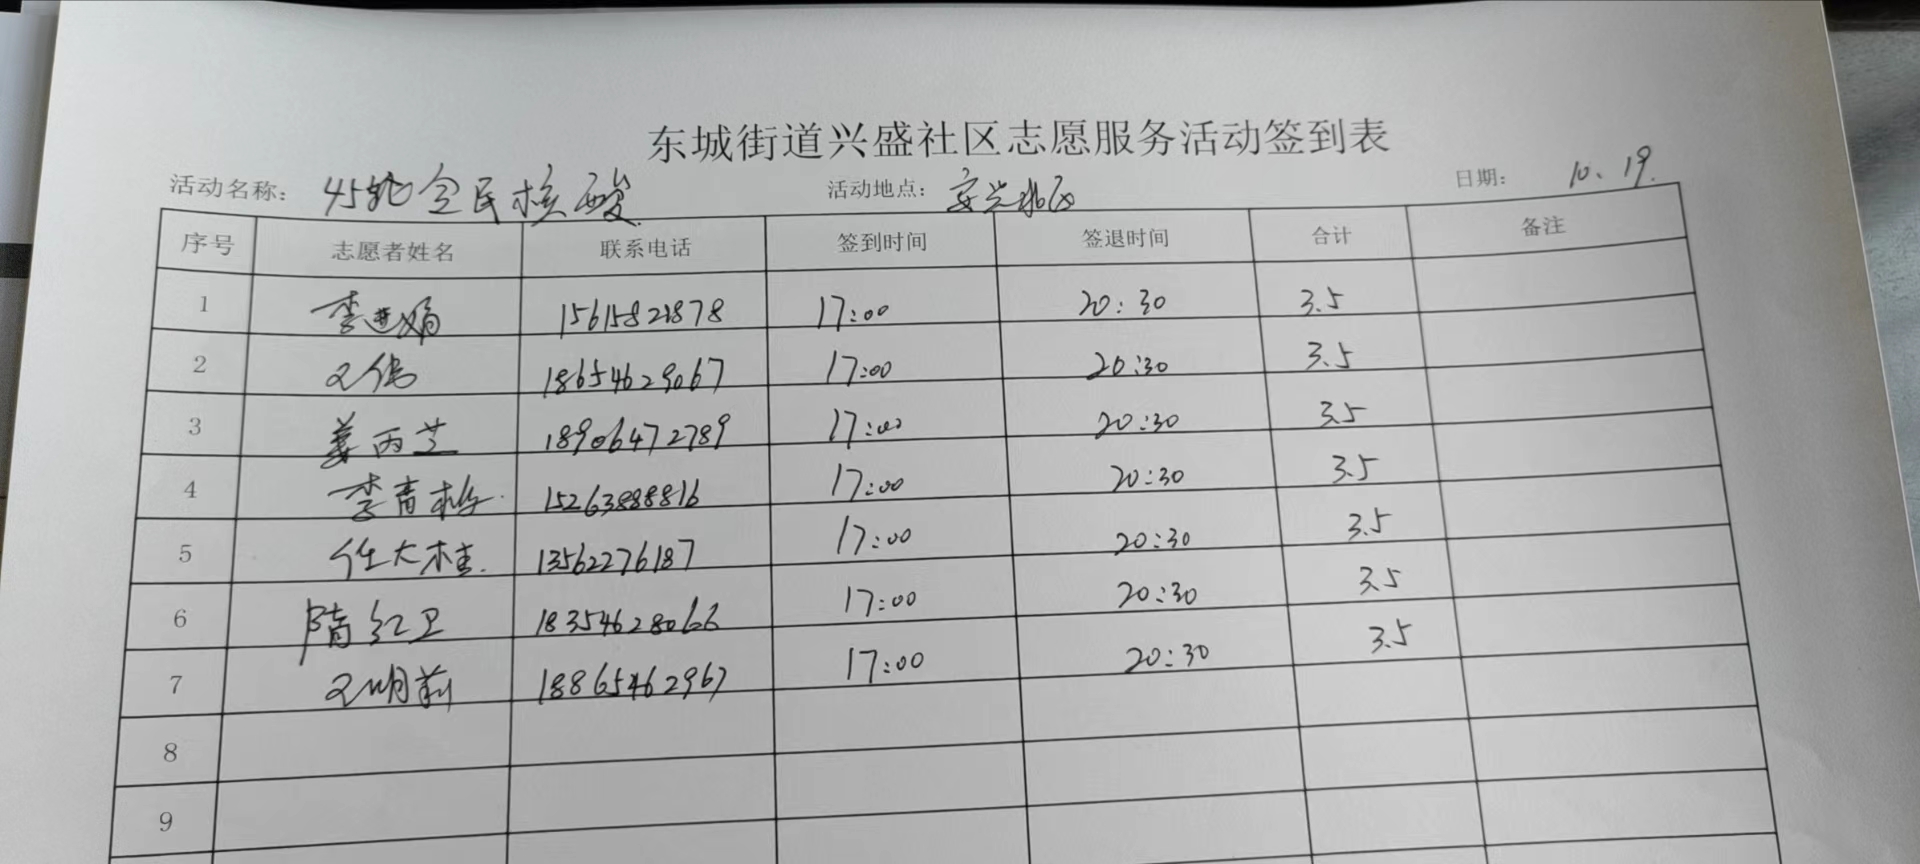 东城街道兴盛社区志愿服务活动签到表
活动名称: 45轮全民核酸 活动地点: 安兴北区 日期: 10.19.
序号 志愿者姓名 联系电话 签到时间 签退时间 合计 备注
1 李进娟 15615821878 17:00 20:30 3.5
2 王伟 18654629067 17:00 20:30 3.5
3 姜丙芝 18906472789 17:00 20:30 3.5
4 李青 15263888816 17:00 20:30 3.5
5 任大桂. 13562276187 17:00 20:30 3.5
6 隋红卫 18354628066 17:00 20:30 3.5
7 王明莉 18865462967 17:00 20:30 3.5
8
9